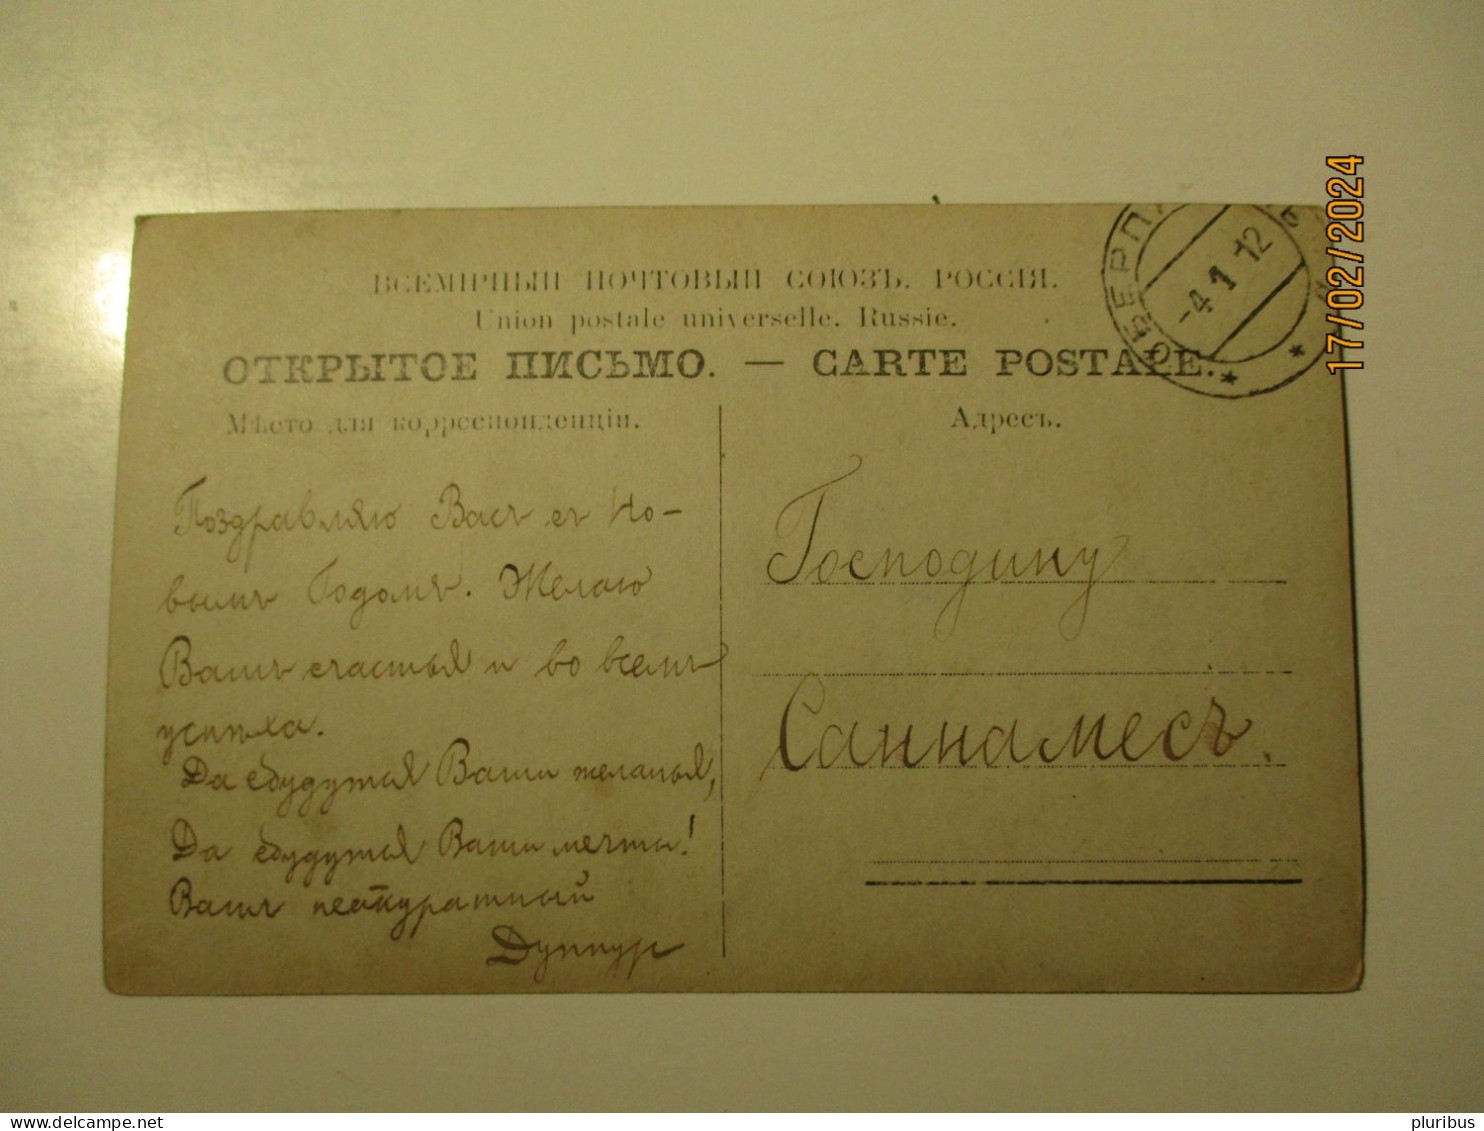 ВСЕМІРНЫЙ ПОЧТОВЫЙ СОЮЗЪ. РОССІЯ.
Union postale universelle. Russie.
ОТКРЫТОЕ ПИСЬМО. — CARTE POSTALE.
Мѣсто для корреспонденціи.
Адресъ.
-4.1.12
Поздравляю Васъ съ Но-
вымъ Годомъ. Желаю
Вамъ счастья и во всемъ
успѣха.
Да сбудутся Ваши желанья,
Да сбудутся Ваши мечты!
Вашъ неаккуратный
Господину
Саннамесъ.
17/02/2024
pluribus